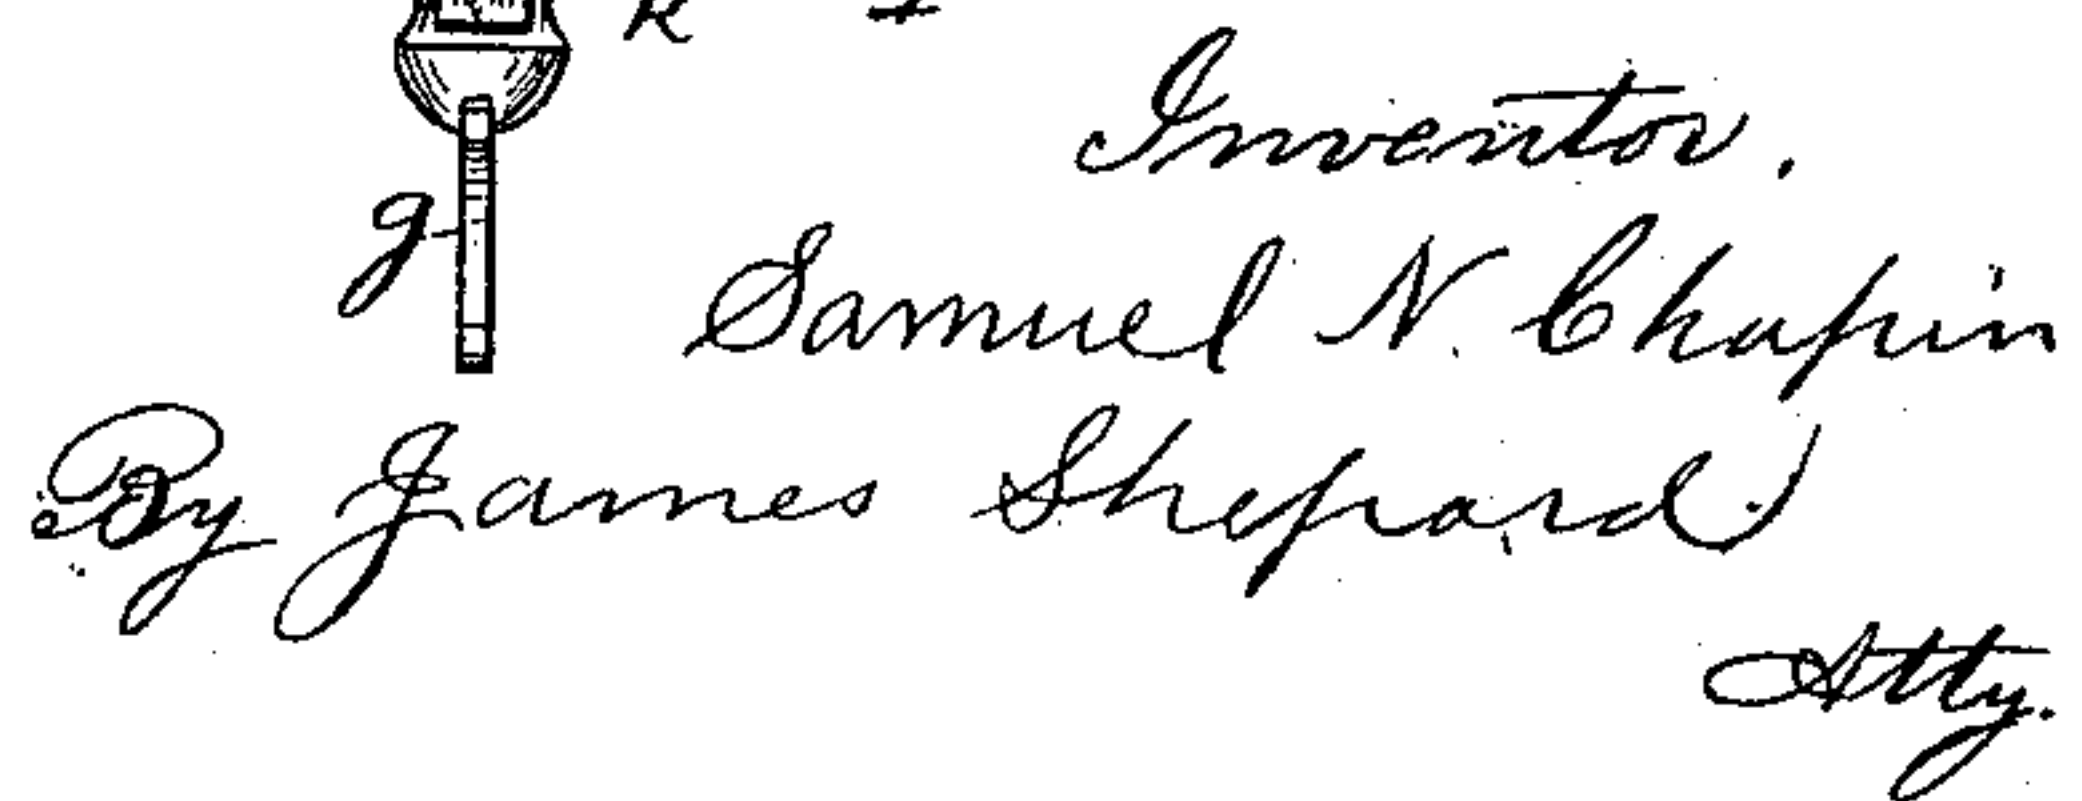 k
Inventor.
g
Samuel N. Chapin
By James Shepard
Atty.